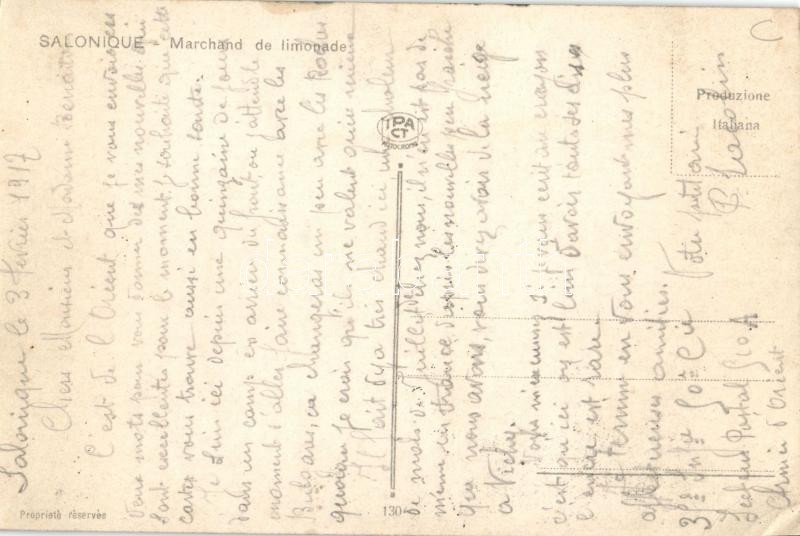 SALONIQUE Marchand de limonade
Produzione
Italiana
IPA
CT
AUTOCROMO
130
Propriété réservée
Salonique le 3 février 1917
Chers Monsieur et Madame
C'est de l'Orient que je vous envoie ces
mots pour vous donner des mes nouvelles qui
sont excellentes pour le moment, souhaite que cette
carte vous trouve aussi en bonne santé.
Je suis ici depuis une quinzaine de jours
dans un camp en arrière du front, on attend le
moment d'aller faire connaissance avec les
Bulgares, ça changeras un peu avec les Boches
quoique je crois que ils ne valent guère mieux
Il fait déjà très chaud ici une chaleur
de mois de Juillet de chez nous, il n'en est pas de
même en France d'après les nouvelles peu fraiche
que nous avons, vous devez avoir de la neige
a Vichy.
Vous m'excuserez si je vous écrit au crayon
c'est qu'ici on est loin d'avoir toutes ses aises
l'encre est rare.
Je termine en vous envoyant mes plus
affectueuses amitiés.
Votre
3e 50e Cie
Secteur Postal 510 A
Armée d'Orient